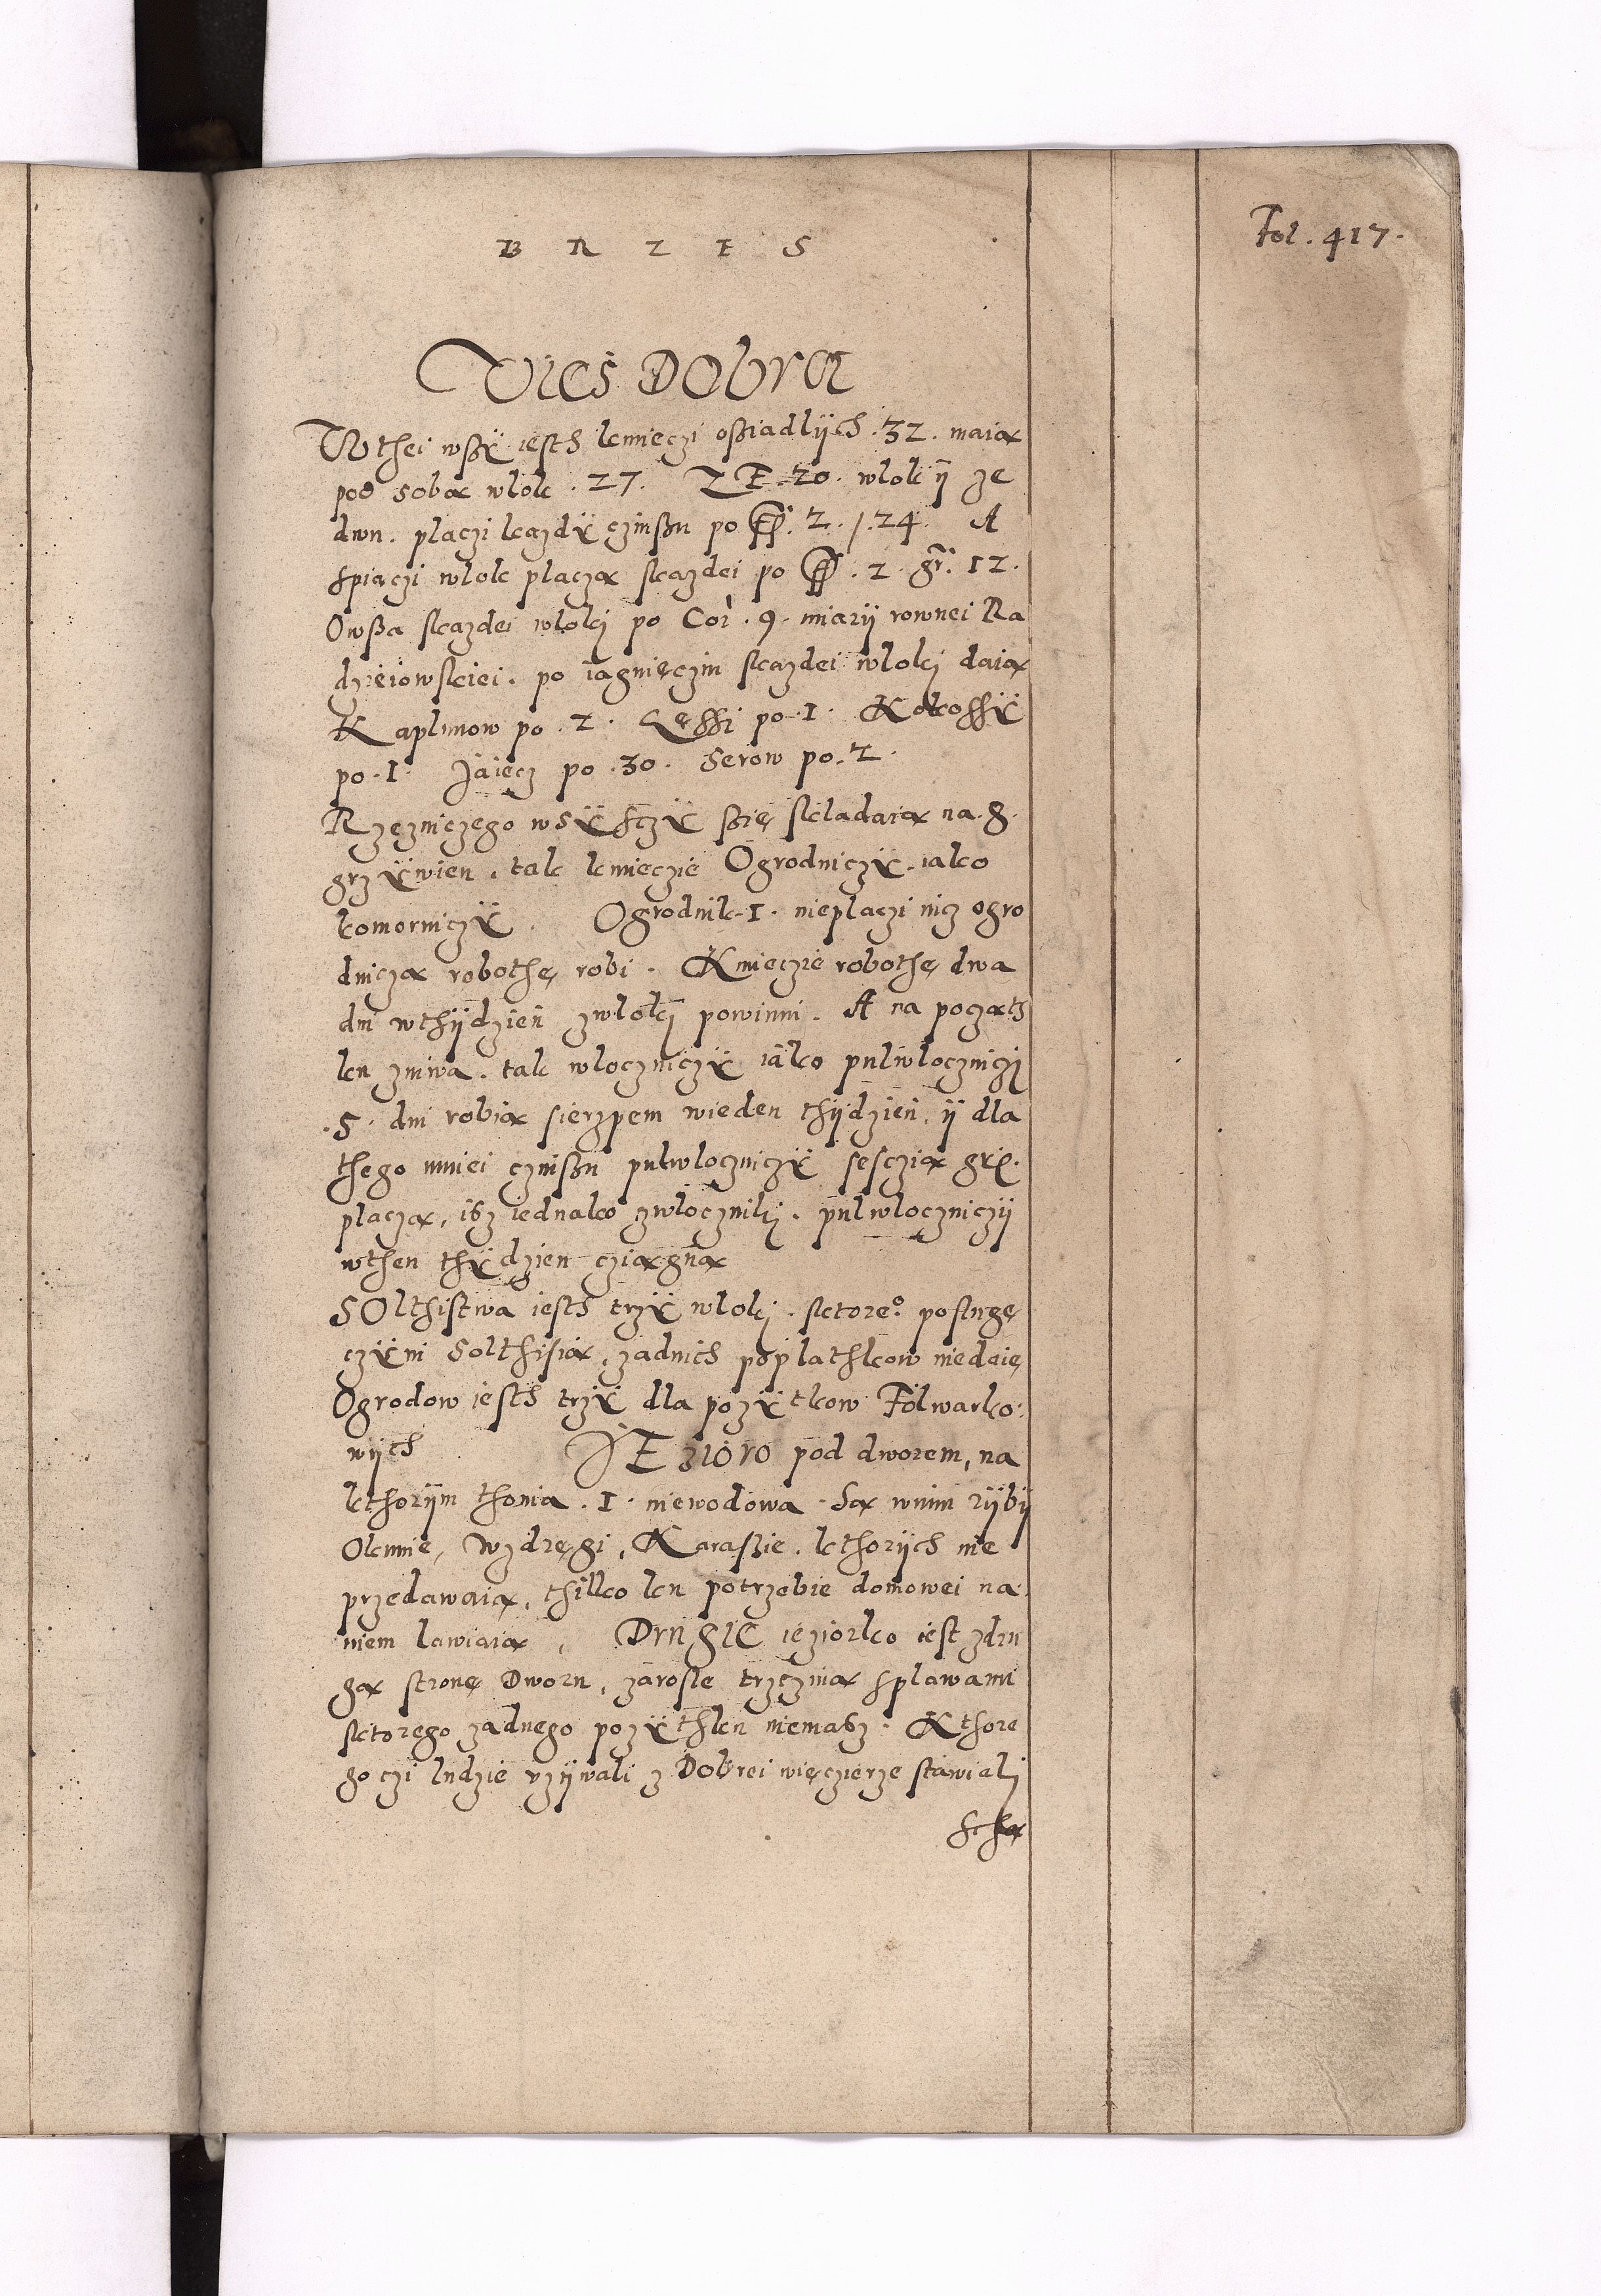 B R Z E S
Fol. 417.
Wieś Dobra
W thei wszÿ iesth kmieczi osziadlÿch .32. maią
pod sobą wlok .27. ZE .20. wlok ÿ ze
dwu. płaczi kazdÿ czinszu po fl. 2./.24. A
spiączi wlok płaczą skazdei po fl. 2. gr. 12.
Owsza skazdei wloki po Cor. 9. miarÿ rownei Ra
dzieiowskiei. po iagnięcziu skazdei wloki daią
Kaplunow po .2. Gęssi po .1. Kokossÿ
po .1. Jaiecz po .30. Serow po .2.
Rzezniczego wsÿsczÿ szię składaią na .8.
grzÿwien. tak kmieczie Ogrodniczÿ iako
komorniczÿ. Ogrodnik .1. nieplaczi nicz ogro
dniczą robothę robi. Kmieczie robothę dwa
dni wthÿdzień zwloki powinni. A na począth
ku zniwa. tak wloczniczÿ iako pulwloczniczi
.5. dni robią sierzpem wieden thÿdzień, ÿ dla
thego mniei czinszu pulwloczniczÿ sesczią grz.
płaczą, isz iednako zwloczniki. pulwloczniczÿ
wthen thÿdzien cziągną
SOlthistwa iesth trzÿ wloki. sktore° poslugę
czÿni Solthisią, zadnich poplathkow niedaię
Ogrodow iesth trzÿ dla pozÿtkow Folwarko:
wÿch JEzioro pod dworem, na
kthorÿm thonia .1. niewodowa. Są wnim rÿbÿ
Okunie, Wzdręgi, Karaszie. kthorÿch nie
przedawaią, thilko ku potrzebie domowei na
niem lawiaią, Drugie ieziorko iest zdru
gą stronę Dworu, zarosle trzcziną splawami
sktorego zadnego pozÿthku niemasz. Kthore
go czi ludzie vzÿwali z Dobrei więczierze stawiali